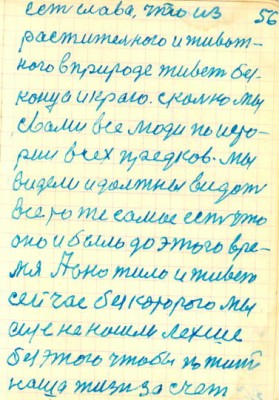 есть слава, что из 56
растителного и живот-
ного в природе живет без
конца и краю. сколко мы
свами все люди по исто-
рии всех предков. мы
видели и должны видать
все то же самое есть что
оно и было до этого вре-
мя А оно жило и живет
сейчас без которого мы
еще не нашли легше
без этого чтобы пожить
наша жизн за счет